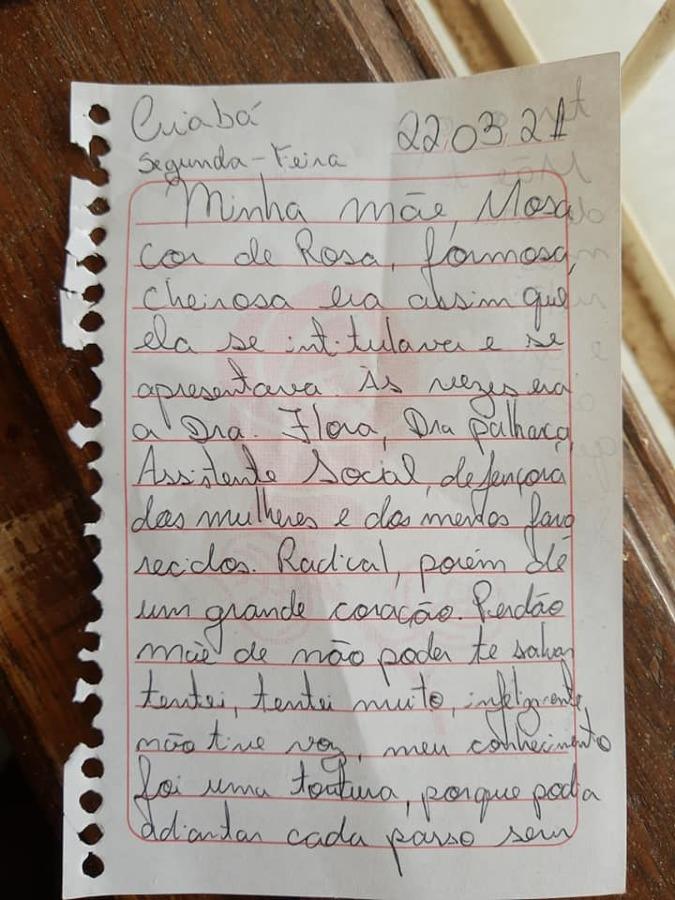 Cuiabá 22.03.21
Segunda-Feira
Minha mãe, Mosa
cor de Rosa, formosa,
cheirosa era assim que
ela se intitulava e se
apresentava. Às vezes era
a Dra. Flora, Dra palhaça,
Assistente Social, defençora
das mulheres e dos menos favo
recidos. Radical, porém de
um grande coração. Perdão
mãe de não poder te salvar
tentei, tentei muito, infelizmente,
não tive voz, meu conhecimento
foi uma tortura, porque podia
adiantar cada passo seu